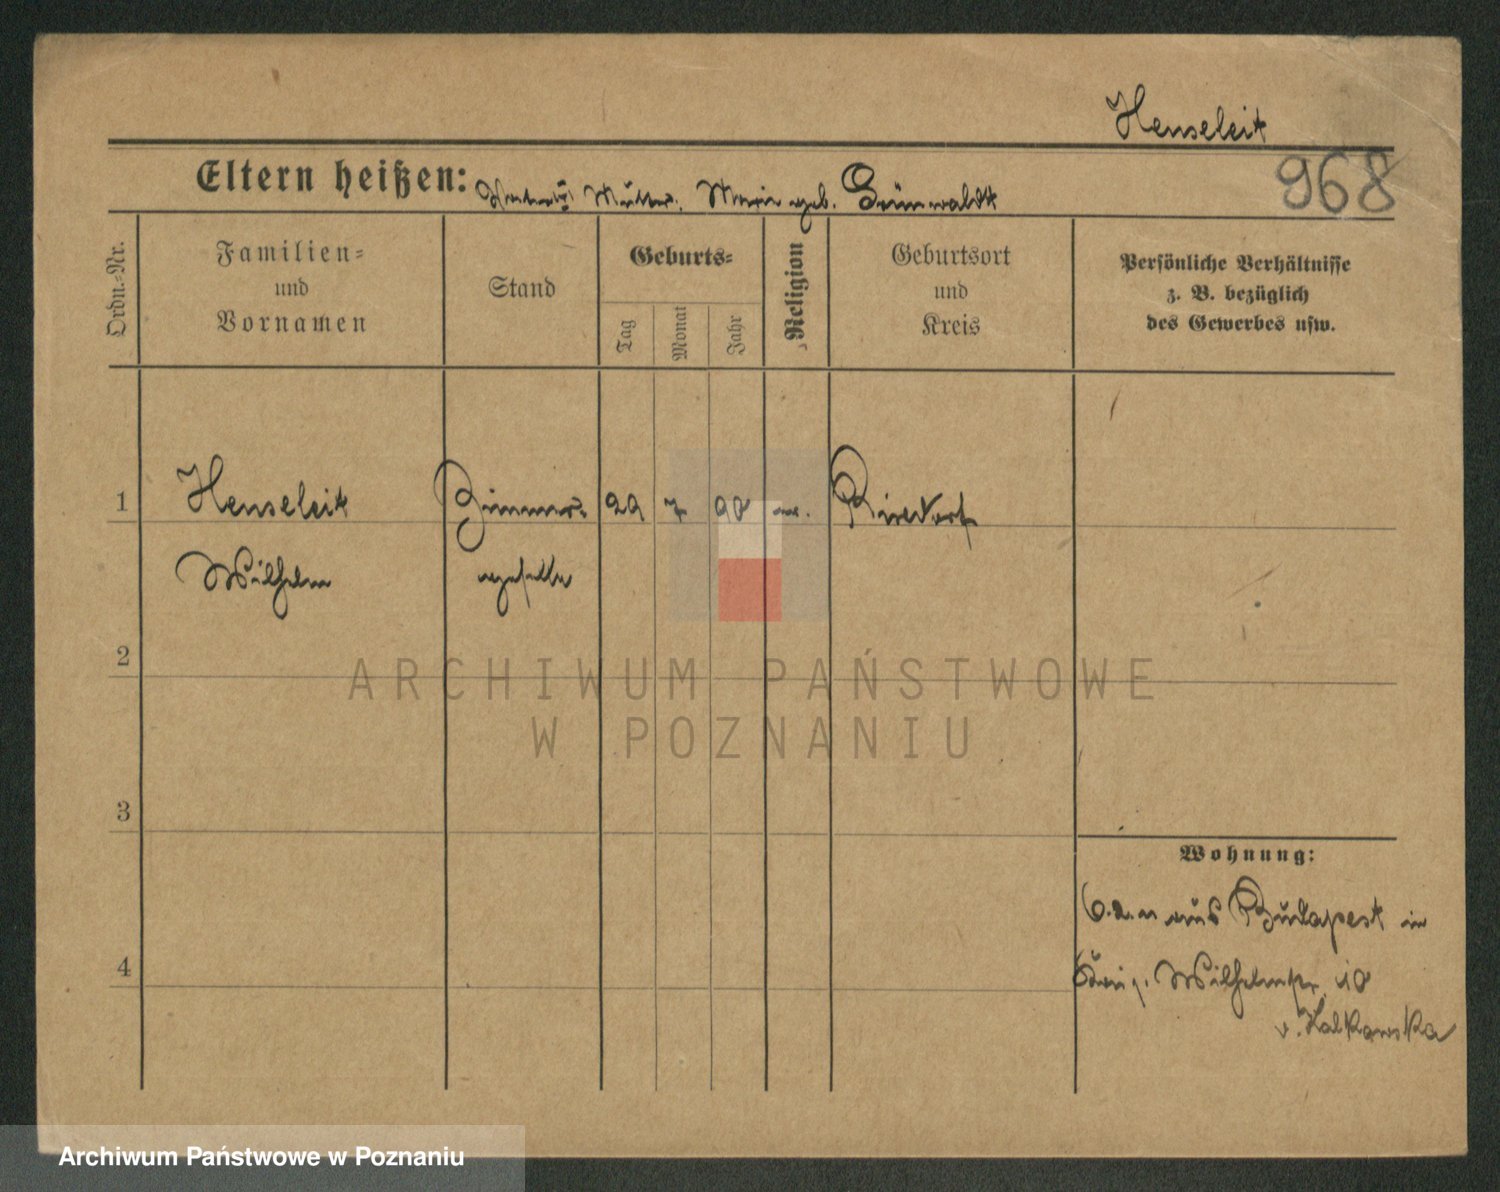 Henseleit
968
Eltern heißen: Mutter: Marie geb. Grünwaldt
Ordn.-Nr.
Familien-
und
Vornamen
Stand
Geburts-
Tag
Monat
Jahr
Religion
Geburtsort
und
Kreis
Persönliche Verhältnisse
z. B. bezüglich
des Gewerbes usw.
1 Henseleit Zimmer- 29 7 90 ev. Rixdorf
Wilhelm geselle
2
3
4
Wohnung:
aus Budapest in
Königl. Wilhelmstr. 10
ARCHIWUM PAŃSTWOWE
W POZNANIU
Archiwum Państwowe w Poznaniu